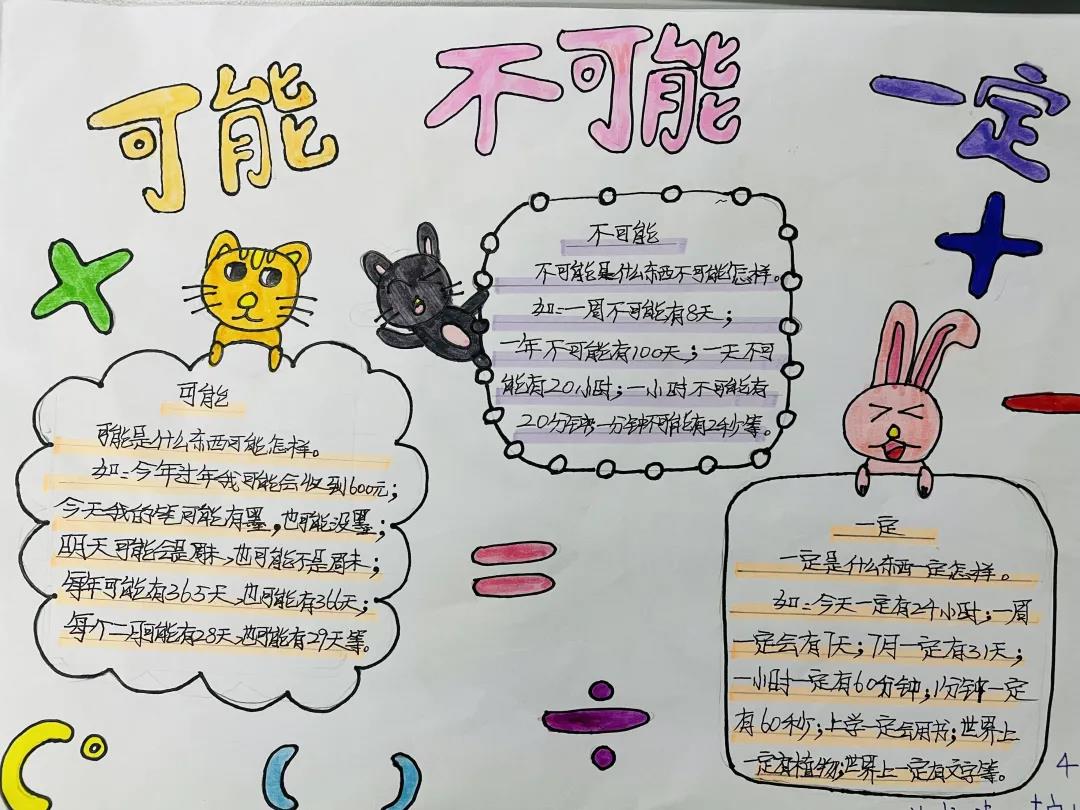 可能
不可能
一定
可能
可能是什么东西可能怎样。
如:今年过年我可能会收到600元;
今天我的笔可能有墨,也可能没墨;
明天可能会是周末,也可能不是周末;
每年可能有365天,也可能有366天;
每个二月可能有28天,也可能有29天等。
不可能
不可能是什么东西不可能怎样。
如:一周不可能有8天;
一年不可能有100天;一天不可
能有20小时;一小时不可能有
20分钟;一分钟不可能有2秒等。
一定
一定是什么东西一定怎样。
如:今天一定有24小时;一周
一定会有7天;7月一定有31天;
一小时一定有60分钟;1分钟一定
有60秒;上学一定会用书;世界上
一定有植物;世界上一定有文字等。
4